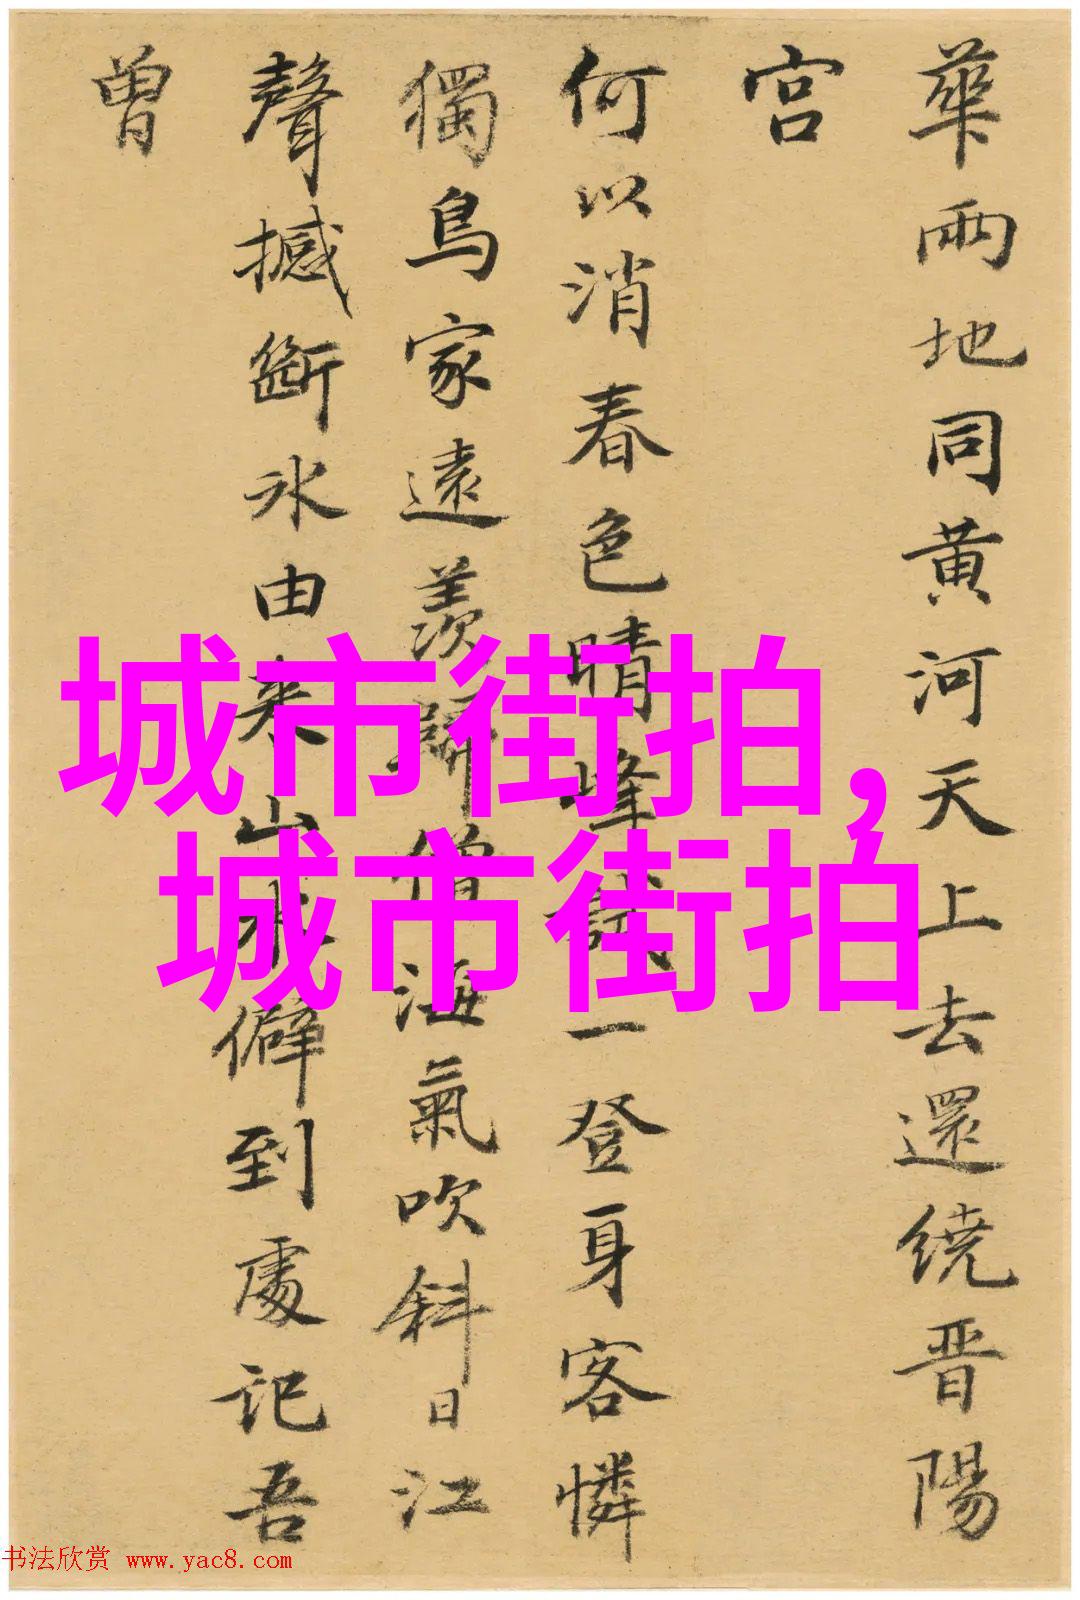 華兩地同黄河天上去還繞晋陽
宫
何以消春色晴峰試一登身客憐
獨鳥家遠羨歸僧海氣吹斜日江
聲撼斷冰由来山水僻到處記吾
曾
城市街拍,
城市街拍
书法欣赏 www.yac8.com